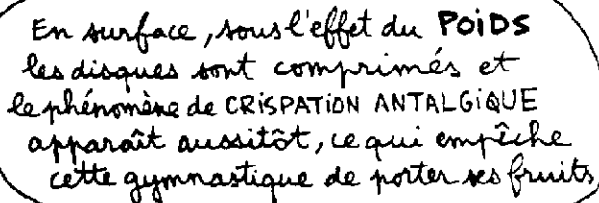 En surface, sous l'effet du POIDS
les disques sont comprimés et
le phénomène de CRISPATION ANTALGIQUE
apparaît aussitôt, ce qui empêche
cette gymnastique de porter ses fruits